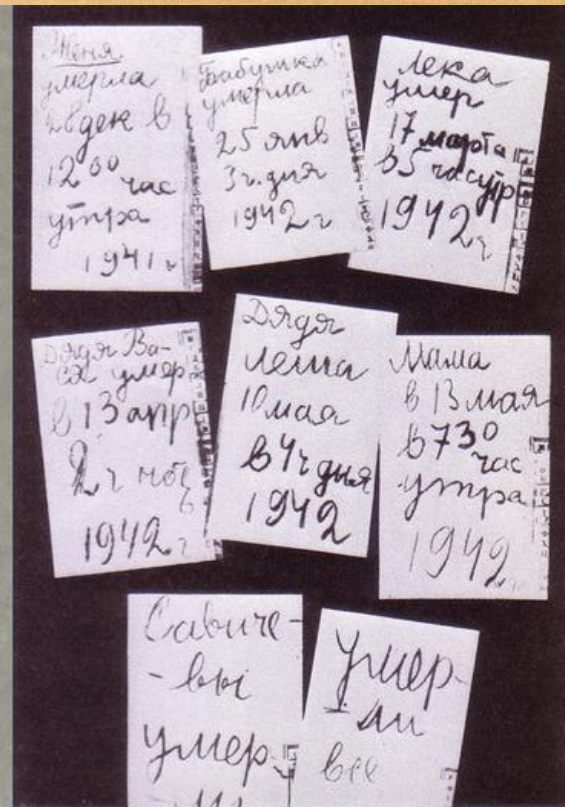 Женя
умерла
28 дек в
12 00 час
утра
1941 г
Бабушка
умерла
25 янв
3 ч. дня
1942 г
Лека
умер
17 марта
в 5 час утр
1942 г
Дядя Ва-
ся умер
в 13 апр
2 ч ноч
1942 г
Дядя
Леша
10 мая
в 4 ч дня
1942
Мама
в 13 мая
в 7 30
час
утра
1942
Савиче-
-вы
умер-
-ли
умер-
-ли
все